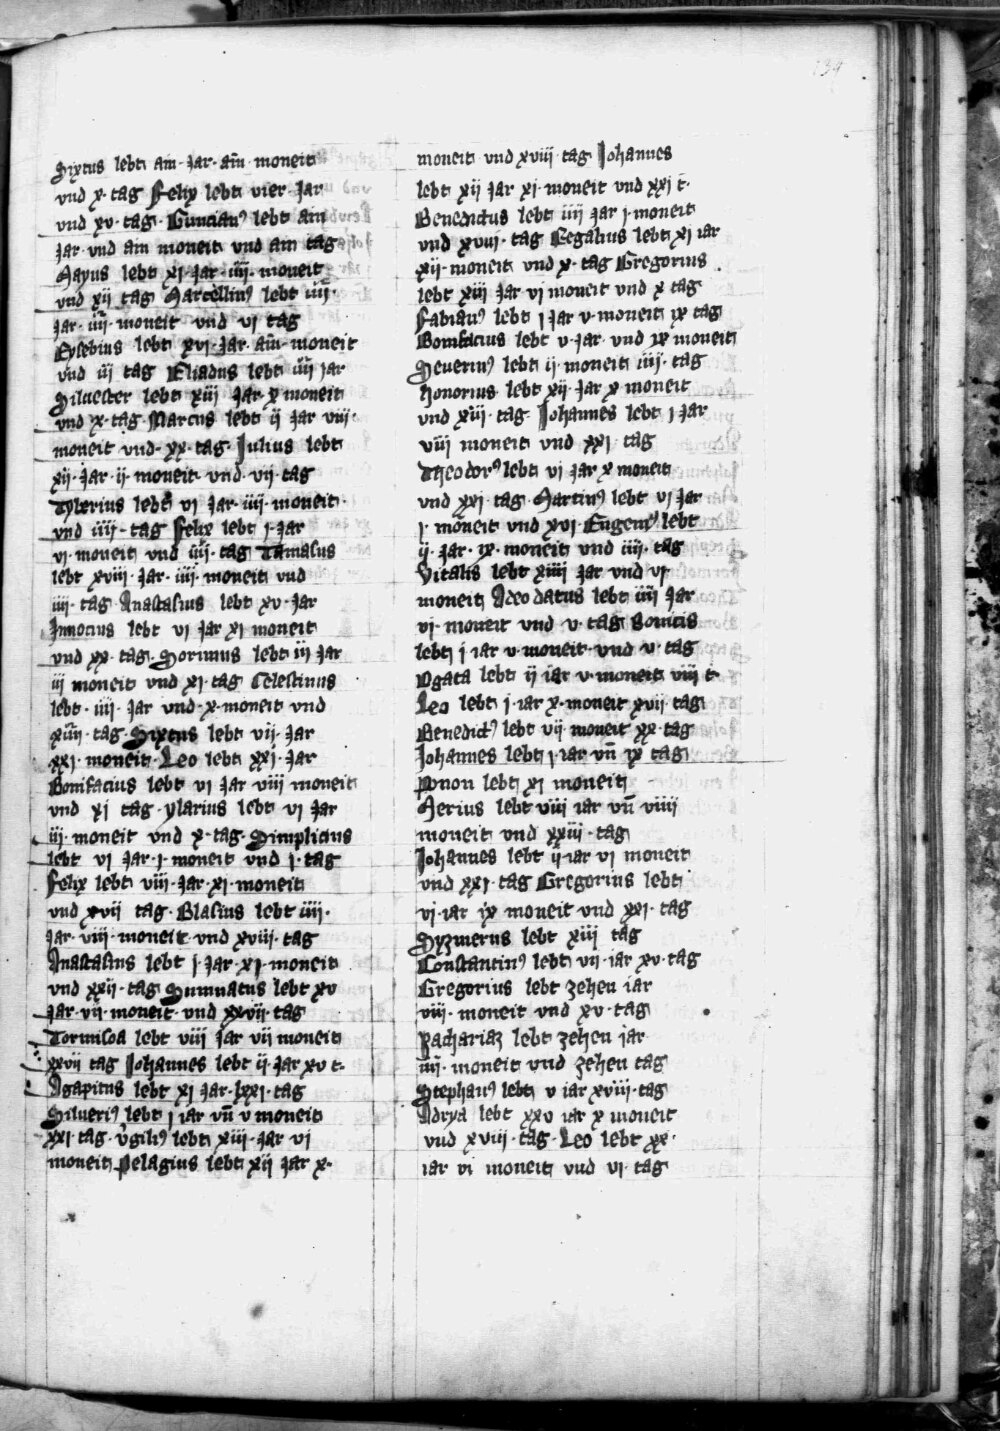 134
Sixtus lebt ain · Jar · ain moneit
vnd x · tag Felix lebt vier · Jar
vnd xv · tag · Euncian⁹ lebt ain
Jar · vnd ain moneit vnd ain tag
Mayus lebt xi · Jar · iiii · moneit
vnd xii tag Marcellin⁹ lebt iiii ·
Jar · iiii · moneit vnd vi tag
Eysebius lebt xvi · Jar · ain · moneit
vnd iii tag Eliadus lebt iiii jar
Siluester lebt xiii Jar · x moneit
vnd x · tag · Marcus lebt ii Jar viii ·
moneit vnd · xx · tag · Julius lebt
xii · Jar · ii · moneit · vnd · vii · tag
Tyberius lebt vi Jar · iiii · moneit ·
vnd iiii · tag Felix lebt i · Jar
vi · moneit vnd iiii · tag Tamasus
lebt xviii · Jar · iiii · moneit vnd
iiii · tag · Anastasius lebt xv · Jar
Innocius lebt vi Jar xi moneit
vnd xx · tag · Sorimus lebt iii Jar
iii moneit vnd xi · tag Celestinus
lebt · iiii · Jar vnd · x · moneit vnd
xiiii · tag · Sixtus lebt vii · Jar
xxi · moneit · Leo lebt xxi · Jar
Bonifacius lebt vi Jar viii moneit
vnd xi tag · ylarius lebt vi Jar
iii · moneit vnd x · tag · Simplicius
lebt vi Jar · i · moneit vnd i · tag
Felix lebt viii · Jar · xi · moneit
vnd xvii tag · Blasius lebt iiii ·
Jar · viii · moneit · vnd xviii · tag
Anastasius lebt i · Jar · xi · moneit
vnd xxii · tag · Sumnatus lebt xv
Jar · vii · moneit · vnd xxvii · tag
Tormisoa lebt viii Jar vii moneit
xxvii tag Johannes lebt ii · Jar xv t ·
Agapitus lebt xi Jar · lxxi · tag
Silueri⁹ lebt i iar vn̄ v moneit
xxi · tag · v̓gili⁹ lebt xiii · Jar vi
moneit Pelagius lebt xii Jar x ·
moneit vnd xviii · tag Johannes
lebt xii Jar xi · moneit vnd xxi t ·
Benedictus lebt iiii Jar i · moneit
vnd xviii · tag Regalius lebt xi iar
xii · moneit vnd x · tag Gregorius
lebt xiii Jar vi moneit vnd x tag
Fabian⁹ lebt i Jar v · moneit ix tag
Bonifacius lebt v · Jar · vnd ix moneit
Seuerin⁹ lebt ii · moneit iiii · tag
Honorius lebt xii · Jar x moneit
vnd xiii · tag · Johannes lebt i Jar
viii moneit vnd xxi · tag
Theodor⁹ lebt vi Jar x moneit
vnd xxi · tag · Martin⁹ lebt vi Jar
i · moneit vnd xvi · Eugeni⁹ lebt
ii · Jar · ix · moneit vnd iiii · tag
Vitalis lebt xiiii Jar vnd vi
moneit Adeodatus lebt iiii Jar
vi · moneit vnd v · tag Bonicis
lebt i iar v · moneit · vnd v · tag
Ogata lebt ii iar v · moneit viii t ·
Leo lebt i · iar x · moneit xvii · tag
Benedict⁹ lebt vii moneit xx · tag
Johannes lebt i · iar vn̄ ix tag
Ponon lebt xi moneit
Merius lebt viii iar vn̄ viiii
moneit vnd xxiii · tag
Johannes lebt ii iar vi moneit
vnd xxi · tag Gregorius lebt
vi · iar ix moneit vnd xxi · tag
Syzmerus lebt xiii tag
Constantin⁹ lebt vii · iar xv · tag
Gregorius lebt zehen iar
viii · moneit vnd xv · tag
Zachariaz lebt zehen jar
iiii · moneit vnd zehen tag
Stephan⁹ lebt v iar xviii · tag
Adrya lebt xxv iar x moneit
vnd xviii · tag · Leo lebt xx ·
iar vi moneit vnd vi · tag